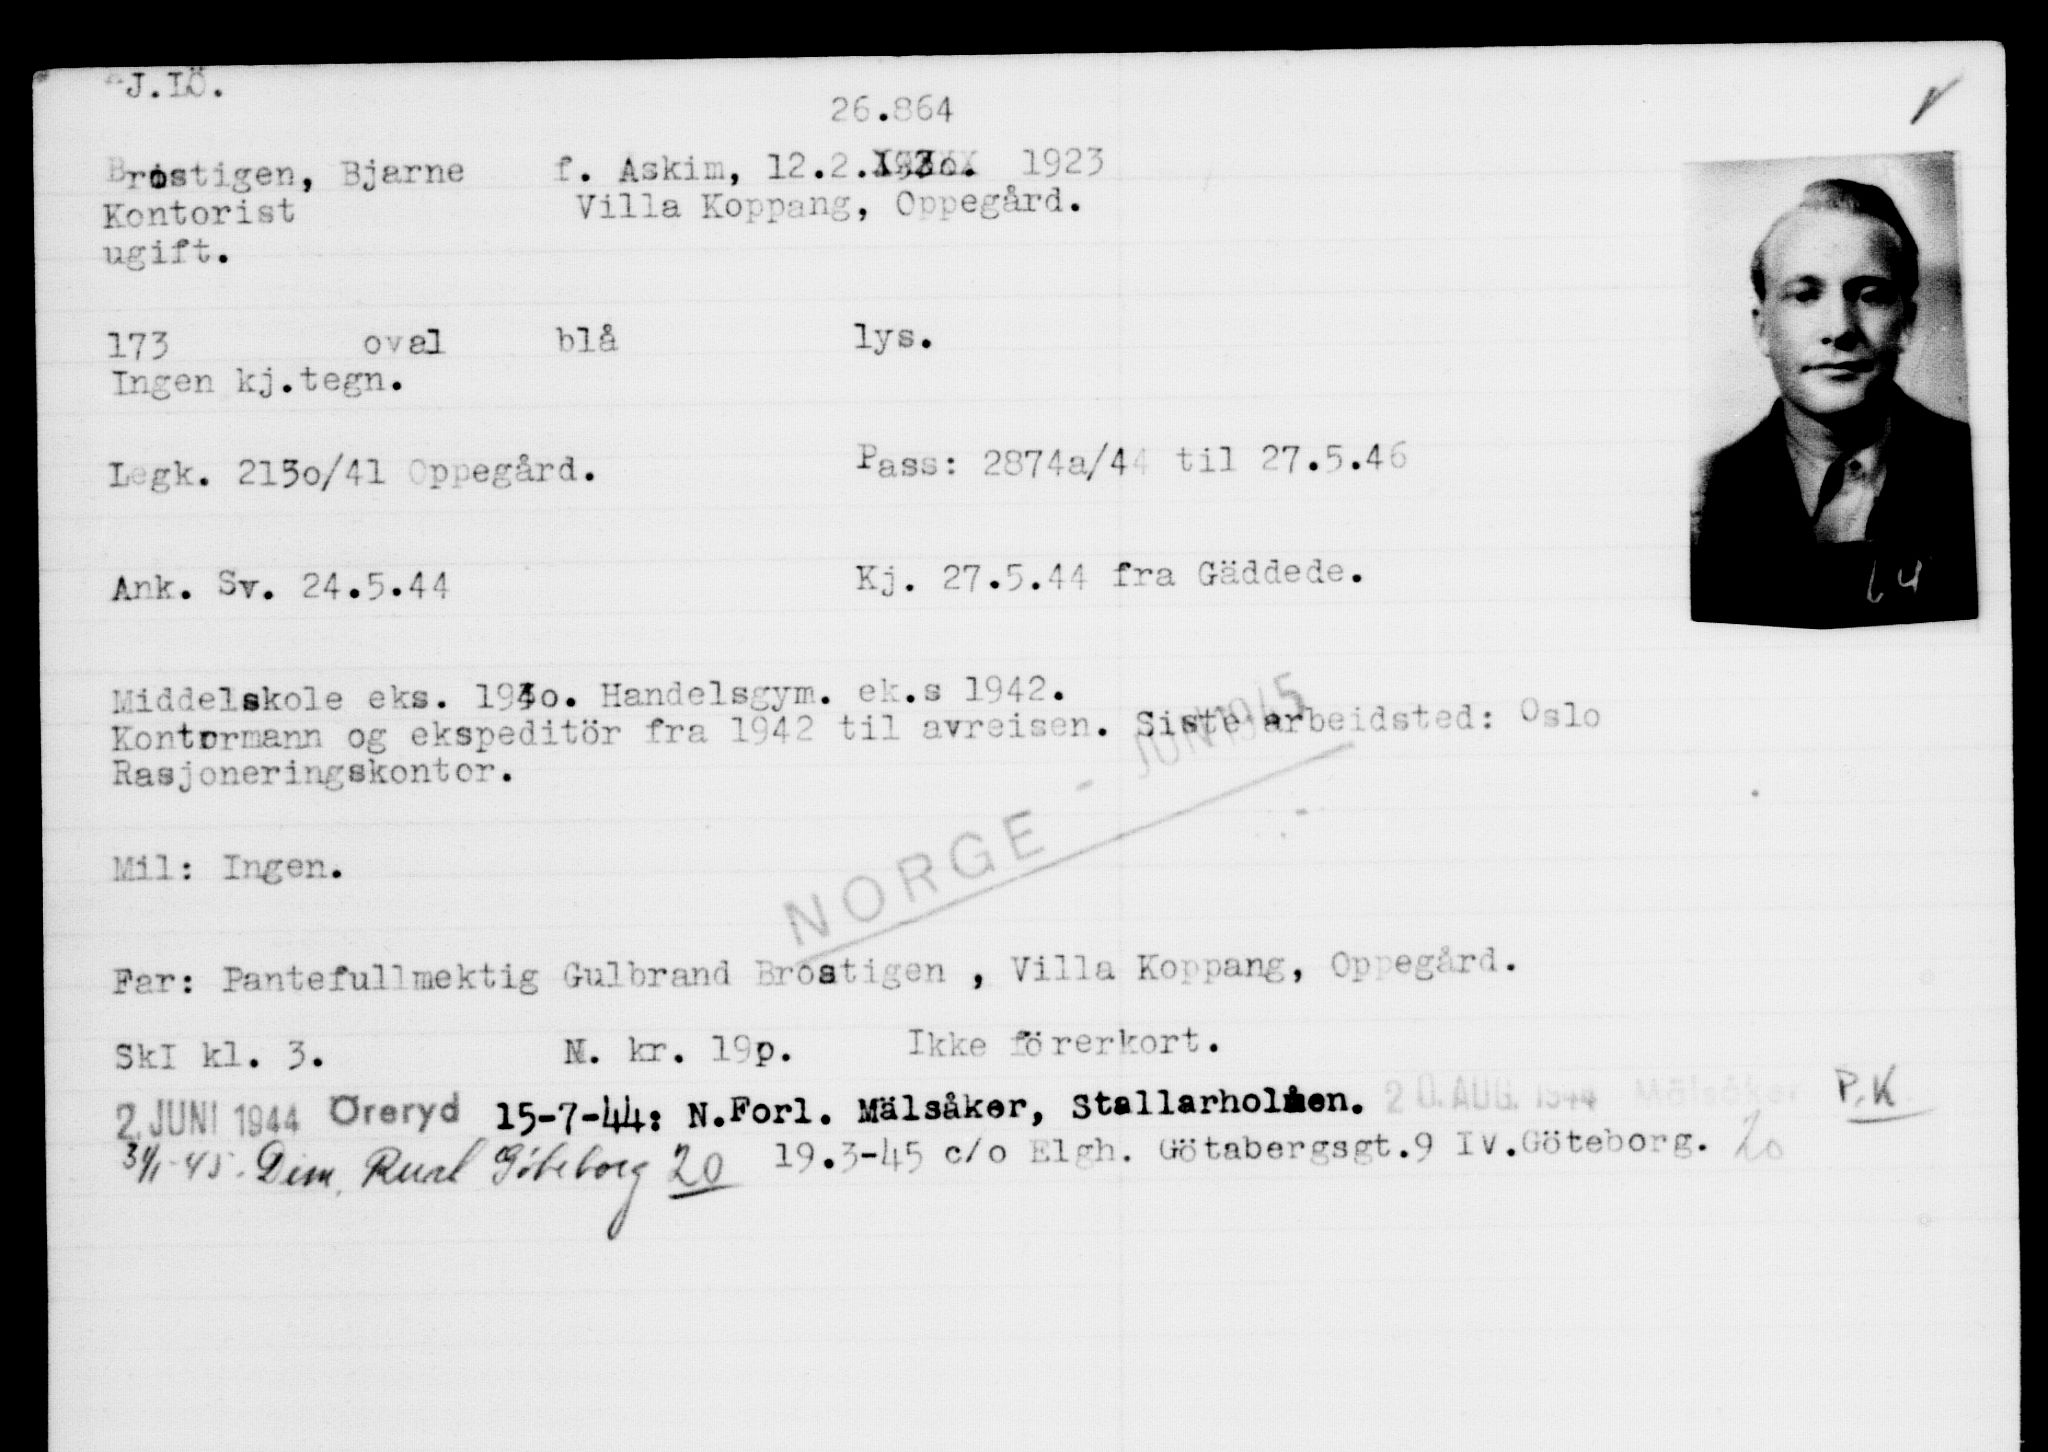 J.LÖ.
26.864
Brostigen, Bjarne f. Askim, 12.2. 1923
Kontorist Villa Koppang, Oppegård.
ugift.
173 oval blå lys.
Ingen kj.tegn.
Legk. 213o/41 Oppegård. Pass: 2874a/44 til 27.5.46
Ank. Sv. 24.5.44 Kj. 27.5.44 fra Gäddede.
64
Middelskole eks. 194o. Handelsgym. ek.s 1942.
Kontormann og ekspeditör fra 1942 til avreisen. Siste arbeidsted: Oslo
Rasjoneringskontor.
NORGE - JUNI 1945
Mil: Ingen.
Far: Pantefullmektig Gulbrand Brostigen , Villa Koppang, Oppegård.
SkI kl. 3. N. kr. 19p. Ikke förerkort.
2. JUNI 1944 Öreryd 15-7-44: N.Forl. Mälsåker, Stallarholmen. 20. AUG. 1944 Mälsåker P.K
31/1-45. Dim. Rual Göteborg 20 19.3-45 c/o Elgh. Götabergsgt.9 IV.Göteborg. 20